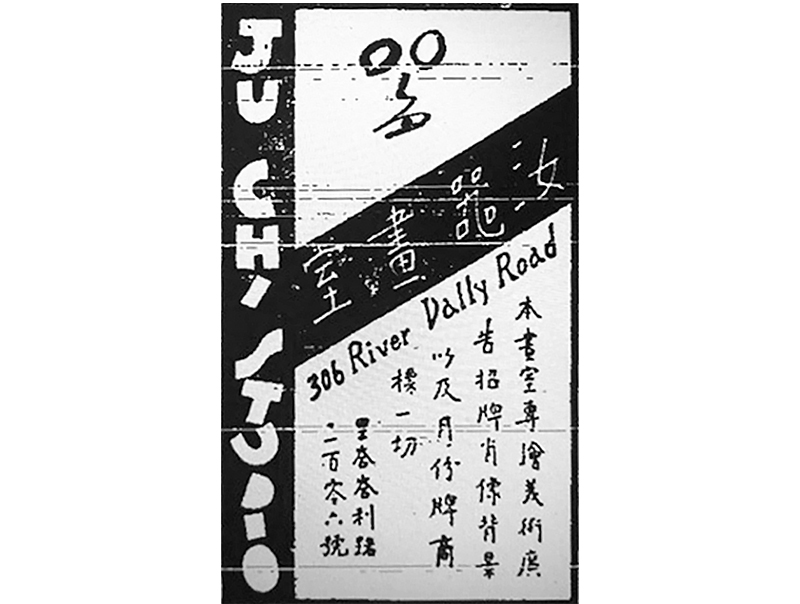 JU CHI STUDIO
汝器畫室
306 River Vally Road
本畫室專繪美術廣
告招牌肖像背景
以及月份牌商
標一切
里峇峇利路
三百零六號